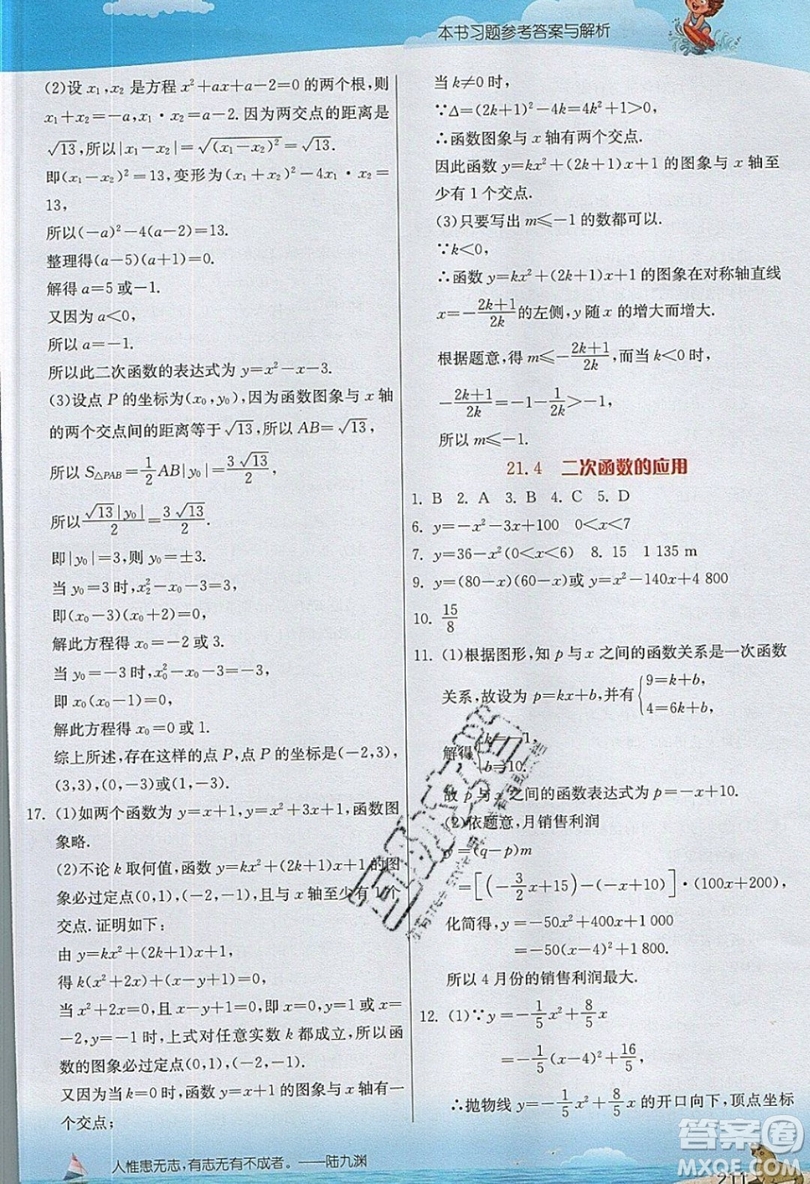 本书习题参考答案与解析
(2)设 x₁,x₂ 是方程 x²+ax+a-2=0 的两个根,则
x₁+x₂=-a,x₁·x₂=a-2.因为两交点的距离是
√13,所以|x₁-x₂|=√(x₁-x₂)²=√13.
即(x₁-x₂)²=13,变形为(x₁+x₂)²-4x₁·x₂=
13,
所以(-a)²-4(a-2)=13.
整理得(a-5)(a+1)=0.
解得 a=5 或-1.
又因为 a<0,
所以 a=-1.
所以此二次函数的表达式为 y=x²-x-3.
(3)设点 P 的坐标为(x₀,y₀),因为函数图象与 x 轴
的两个交点间的距离等于√13,所以 AB=√13,
所以 S△PAB=1/2 AB|y₀|=3√13/2.
所以 √13|y₀|/2=3√13/2.
即|y₀|=3,则 y₀=±3.
当 y₀=3 时,x₂²-x₀-3=3,
即(x₀-3)(x₀+2)=0.
解此方程得 x₀=-2 或 3.
当 y₀=-3 时,x₀²-x₀-3=-3,
即 x₀(x₀-1)=0.
解此方程得 x₀=0 或 1.
综上所述,存在这样的点 P,点 P 的坐标是(-2,3),
(3,3),(0,-3)或(1,-3).
17. (1)如两个函数为 y=x+1,y=x²+3x+1,函数图
象略.
(2)不论 k 取何值,函数 y=kx²+(2k+1)x+1 的图
象必过定点(0,1),(-2,-1),且与 x 轴至少有 1 个
交点.证明如下:
由 y=kx²+(2k+1)x+1,
得 k(x²+2x)+(x-y+1)=0.
当 x²+2x=0,且 x-y+1=0,即 x=0,y=1,或 x=
-2,y=-1 时,上式对任意实数 k 都成立,所以函
数的图象必过定点(0,1),(-2,-1).
又因为当 k=0 时,函数 y=x+1 的图象与 x 轴有一
个交点;
当 k≠0 时,
∵Δ=(2k+1)²-4k=4k²+1>0,
∴函数图象与 x 轴有两个交点.
因此函数 y=kx²+(2k+1)x+1 的图象与 x 轴至
少有 1 个交点.
(3)只要写出 m≤-1 的数都可以.
∵k<0,
∴函数 y=kx²+(2k+1)x+1 的图象在对称轴直线
x=-(2k+1)/2k 的左侧,y 随 x 的增大而增大.
根据题意,得 m≤-(2k+1)/2k,而当 k<0 时,
-(2k+1)/2k=-1-1/2k>-1,
所以 m≤-1.
21.4 二次函数的应用
1. B 2. A 3. B 4. C 5. D
6. y=-x²-3x+100 0<x<7
7. y=36-x²(0<x<6) 8. 15 1 135 m
9. y=(80-x)(60-x)或 y=x²-140x+4 800
10. 15/8
11. (1)根据图形,知 p 与 x 之间的函数关系是一次函数
关系,故设为 p=kx+b,并有{9=k+b, 4=6k+b,
解得 1, b=10.
故 p 与 x 的函数表达式为 p=-x+10.
(2)依题意,月销售利润
y=(q-p)m
=[(-3/2 x+15)-(-x+10)]·(100x+200),
化简得,y=-50x²+400x+1 000
=-50(x-4)²+1 800.
所以 4 月份的销售利润最大.
12. (1)∵y=-1/5 x²+8/5 x
=-1/5(x-4)²+16/5,
∴抛物线 y=-1/5 x²+8/5 x 的开口向下,顶点坐标
人惟患无志,有志无有不成者。——陆九渊
211
答案圈
MXQE.COM